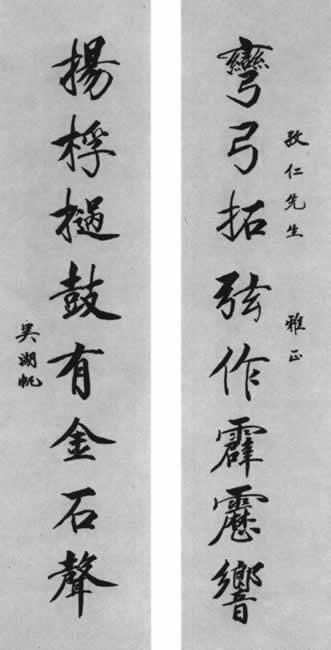 彎弓拓弦作霹靂響
孜仁先生 雅正
揚桴撾鼓有金石聲
吳湖帆